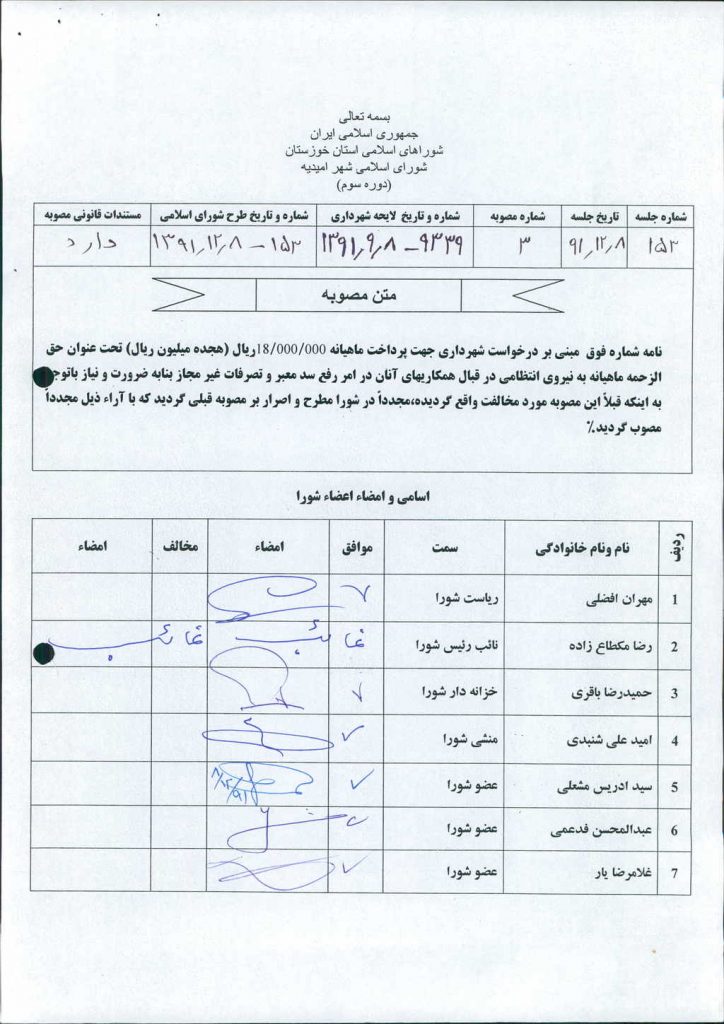 بسمه تعالی
جمهوری اسلامی ایران
شوراهای اسلامی استان خوزستان
شورای اسلامی شهر امیدیه
(دوره سوم)
شماره جلسه تاریخ جلسه شماره مصوبه شماره و تاریخ لایحه شهرداری شماره و تاریخ طرح شورای اسلامی مستندات قانونی مصوبه
۱۵۳ ۹۱,۱۲,۸ ۳ ۹۴۳۹ – ۱۳۹۱,۹,۸ ۱۵۳ – ۱۳۹۱,۱۲,۸ دارد
متن مصوبه
نامه شماره فوق مبنی بر درخواست شهرداری جهت پرداخت ماهیانه 18/000/000ریال (هجده میلیون ریال) تحت عنوان حق
الزحمه ماهیانه به نیروی انتظامی در قبال همکاریهای آنان در امر رفع سد معبر و تصرفات غیر مجاز بنابه ضرورت و نیاز باتوجه
به اینکه قبلاً این مصوبه مورد مخالفت واقع گردیده،مجدداً در شورا مطرح و اصرار بر مصوبه قبلی گردید که با آراء ذیل مجدداً
مصوب گردید.٪
اسامی و امضاء اعضاء شورا
ردیف نام ونام خانوادگی سمت موافق امضاء مخالف امضاء
1 مهران افضلی ریاست شورا
2 رضا مکطاع زاده نائب رئیس شورا غائب غائب
3 حمیدرضا باقری خزانه دار شورا
4 امید علی شنبدی منشی شورا
5 سید ادریس مشعلی عضو شورا ۹۱/۱۲/۸
6 عبدالمحسن فدعمی عضو شورا
7 غلامرضا یار عضو شورا